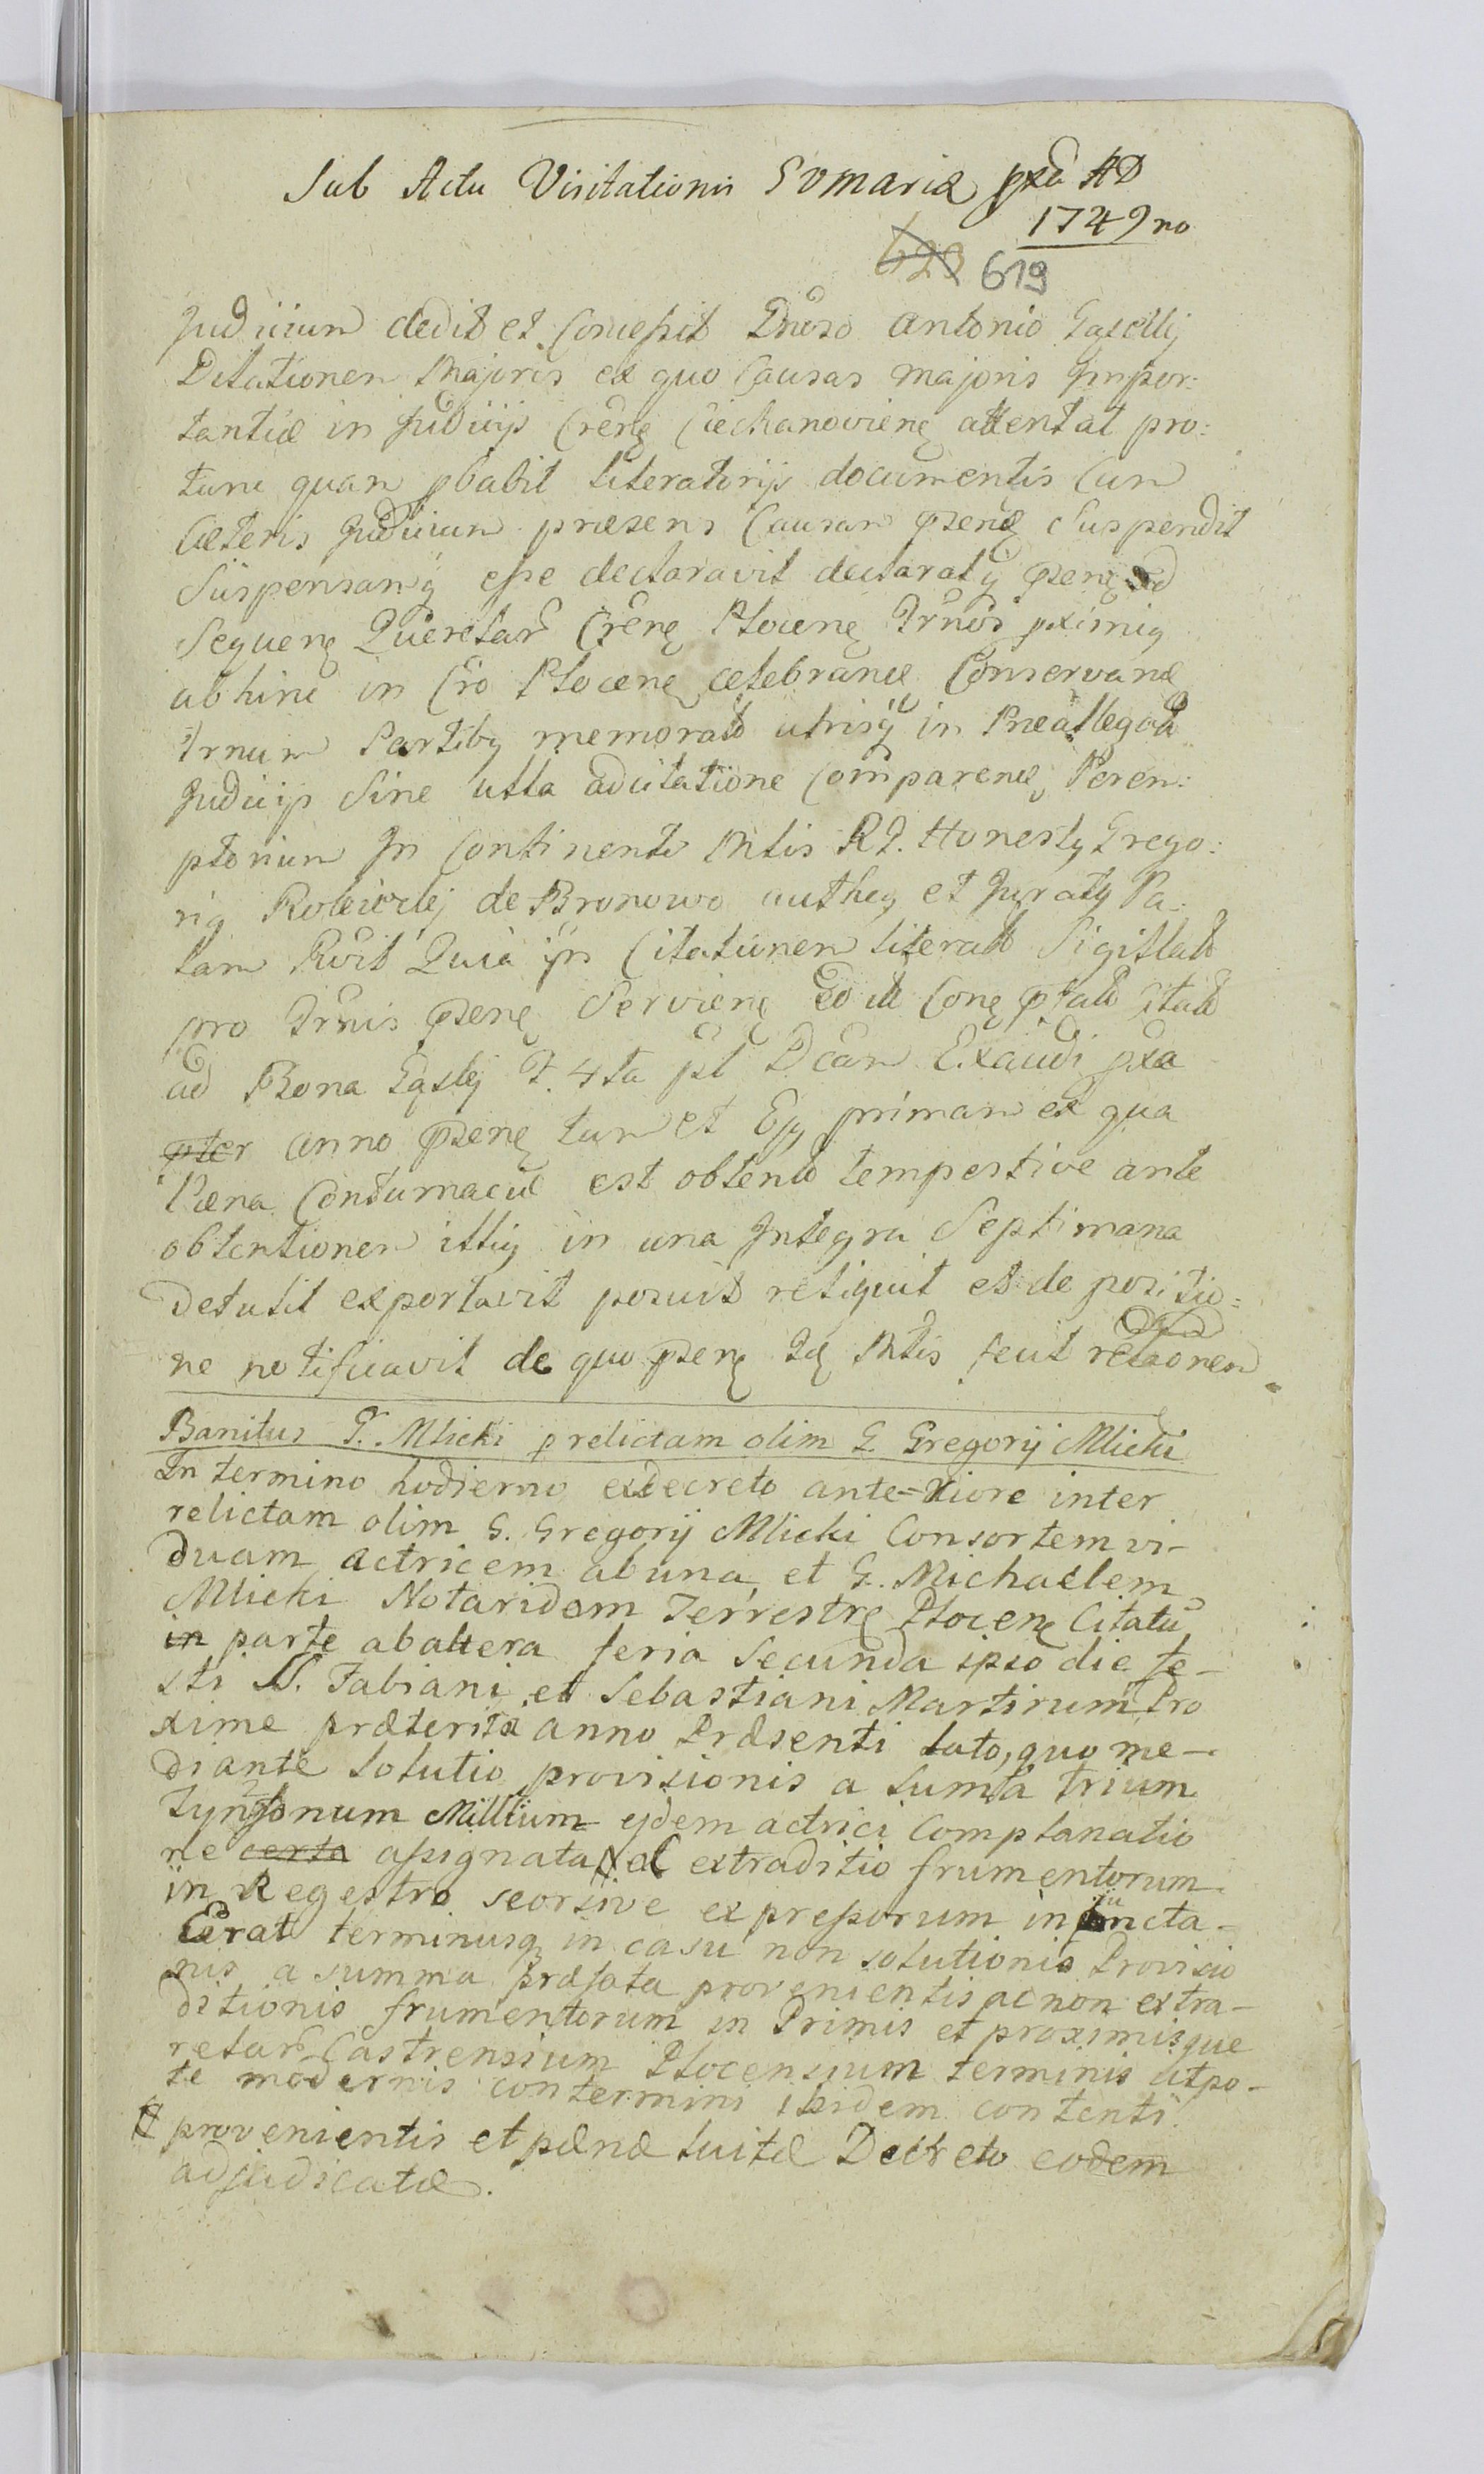 Sub Actu Visitationis S V Mariæ pxa AD
1749no
623 619
Judicium dedit et Concessit Antonio
Dilationem Majoris ex quo Causas majoris Impor:
tantiæ in Judicijs Crens Ciechanoviens attentat pro:
tunc quam pbabit literatorijs documentis Cum
Cæteris Judicium præsens Causam psens Suspendit
Suspensamq esse declaravit psens ad
Sequens Querelar Crens Plocens Trnos pximis
abhinc in Cro Plocens celebrand Conservand
Trnum Partibq memorat utrisq in Præallegat
Judicijs Sine ulla adcitatione Comparend Peren:
ptorium In Continenti Mtis RG. Honestq Grego:
riq de Bronowo authen et Juratq Pa:
lam Rvit Quia ijs Citationem literat Sigillat
pro Trnis psens Serviens
ad Bona F. 4ta pt Dcam Exaudi pxa
pter anno psens tum et primam ex qua
Pæna Contumaciæ est obtenta tempestive ante
obtentionem illiq in una Integra Septimana
Detulit exportavit posuit reliquit et de positio:
ne notificavit de quo psens Mtis fecit relaonem
Banitus G. Mlicki p relictam olim G. Gregorij Mlicki
In termino hodierno exdecreto ante=riore inter
relictam olim G. Gregorij Mlicki Consortem vi-
duam actricem abuna, et G. Michaelem
Mlicki Notaridem Terrestre Plocens Citatu
in parte abaltera feria Secunda ipso die fe-
sti SS. Fabiani et Sebastiani Martirum Pro
xime præterita anno Præsenti lato, quo me-
diante Solutio provisionis a Sumta trium
Tynfonum Millium ejdem actrici Complanatio
ne certa assignata, et extraditio frumentorum
in Regestro seorsive expressorum injuncta-
Erat terminusq in casu non solutionis Provisio
nis a summa præfata provenientis ac non extra-
ditionis frumentorum in Primis et proximisque
relar Castrensium Plocensium terminis utpo-
te modernis contermini ibidem contenti
provenientis et pænæ luitæ Decreto eodem
adjudicatæ.